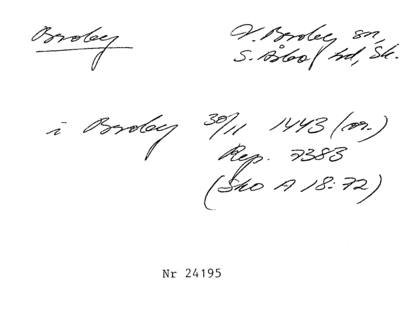 Broby
V. Broby sn,
S. Åsbo hd, Sk.
i Broby 30/11 1443 (or.)
Rep. 7383
(Sko A 18:72)
Nr 24195